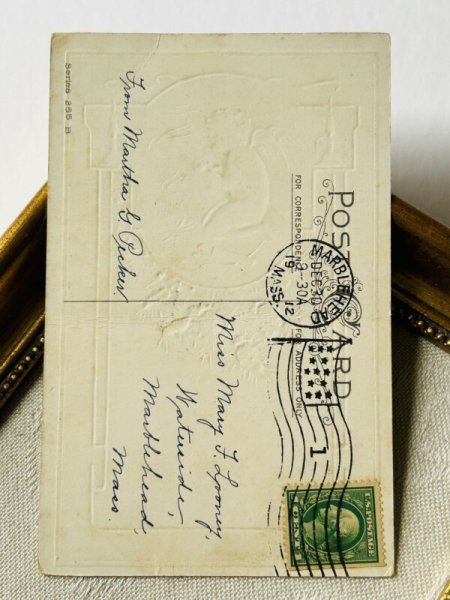 POST CARD
FOR CORRESPONDENCE
FOR ADDRESS ONLY
MARBLEHEAD
DEC 30
9-30A
19 12
MASS.
1
U.S. POSTAGE
Series 255 B
From Martha G Pecker
Miss Mary F Looney,
Waterside,
Marblehead,
Mass.